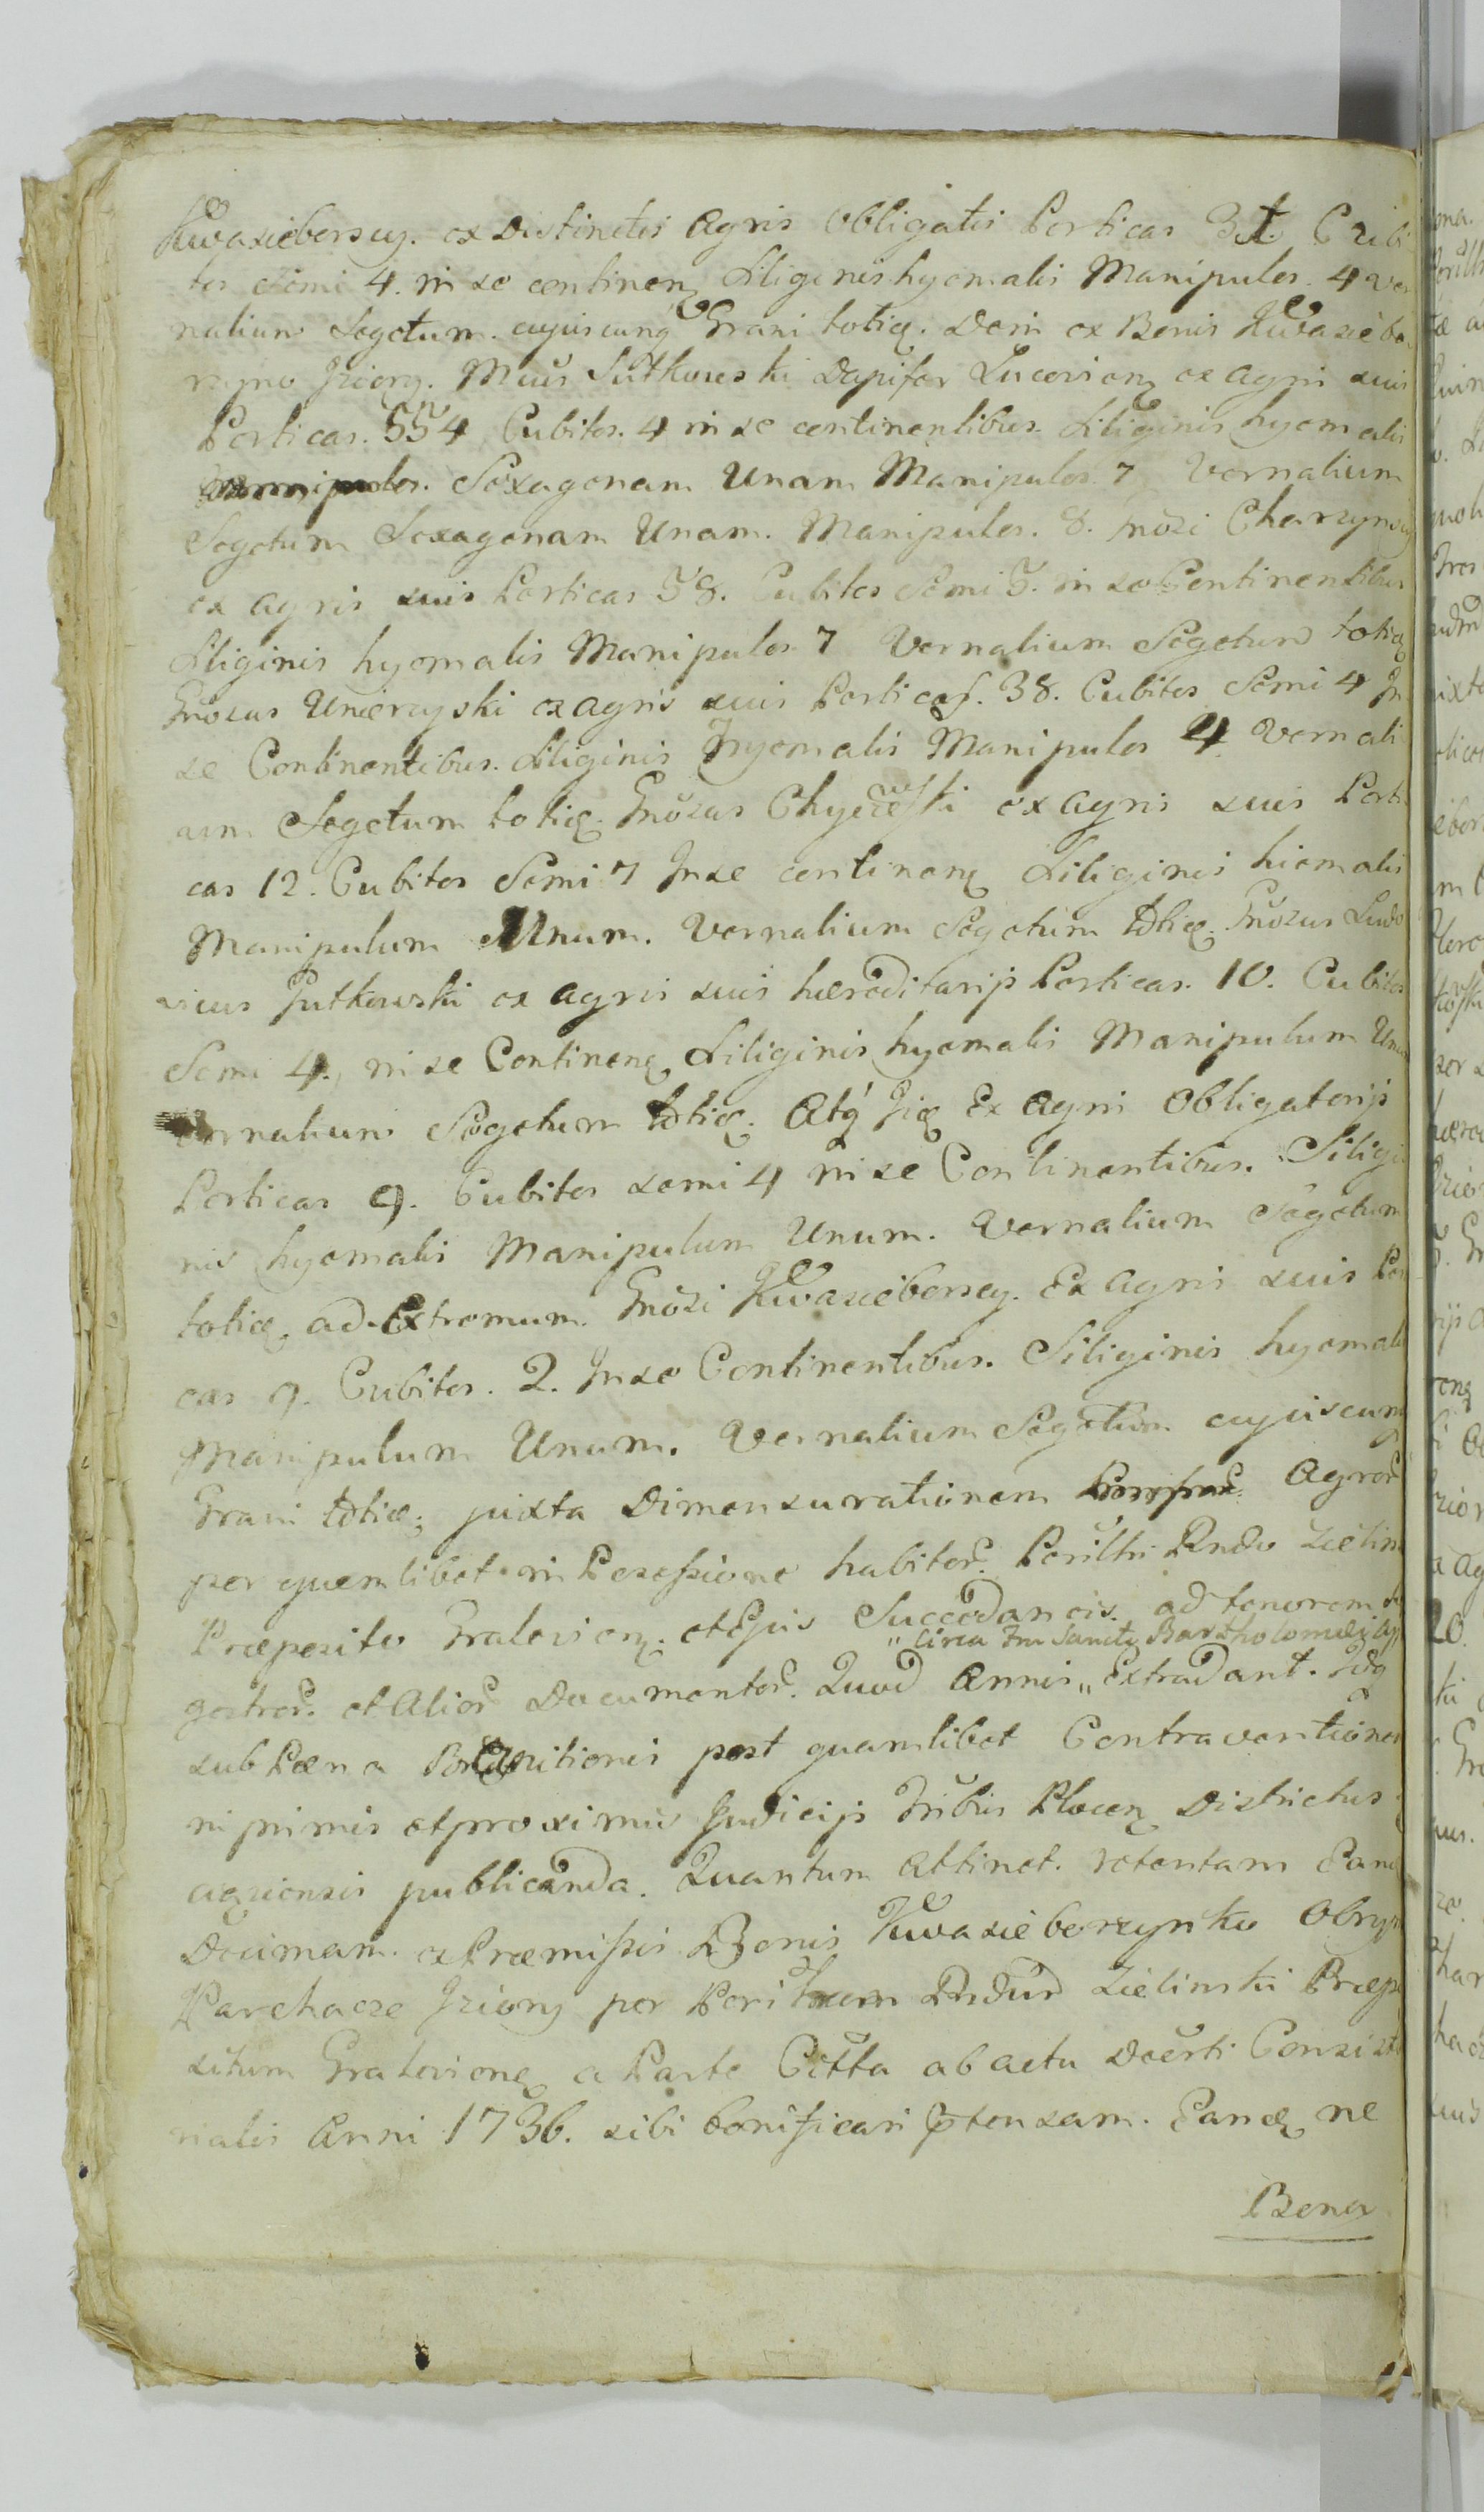 Kwaseborscy. ex Distinctis Agris Obligatis Perticas 31. Cubi
tos Semi 4. in se continen Siliginis hyemalis Manipulos. 4 ver
nalium Segetum. cujuscunq Grani totiq. Dein ex Bonis Kwasiebo
rzyno Jzion. Mcus Sutkowski Dapifer Lucovien ex agris suis
Perticas. 554 Cubitos. 4 in se continentibus. Siliginis hyemalis
Sexagenam Unam Manipulos 7 Vernalium
Segetum Sexagenam Unam. Manipulos. 8. Gnosi Charzynscy
ex agris suis Perticas 58. Cubitos Semi 5. in se Continentibus
Siliginis hyemalis Manipulos 7 Vernalium Segetum totiq
Gnosus Unierzyski ex agris suis Perticas. 38. Cubitos Semi 4 In
se Continentibus. Siliginis Hyemalis Manipulos 4 Vernali
um Segetum totiq. Gnosus Chyczewski ex agris suis Perti
cas 12. Cubitos Semi 7 In se continen Siliginis hiemalis
Manipulum Unum. Vernalium Segetum totiq. Gnosus Ludo
vicus Gutkowski ex agris suis hæreditarijs Perticas. 10. Cubitos
Semi 4. in se Continen Siliginis hyemalis Manipulum Unu
ernalium Segetum totiq. Atq Ex Agris Obligatorijs
Perticas 9. Cubitos semi 4 in se Continentibus. Siligi
nis hyemalis Manipulum Unum. Vernalium Segetum
totiq. ad Extremum. Gnosi Kwasieborscy. Ex agris suis Per
cas 9. Cubitos. 2. In se Continentibus. Siliginis hyemalis
Manipulum Unum. Vernalium Segetum cujuscunq
Grani totiq; juxta Dimensurationem Agror
per quemlibet in Possessione habitor. Perillri Rndo Zielins
Præposito Gralevien. et Ejus Succedaneis. ad tenorem
„Circa Fm Sancti Bartholomæi Ap„
gestror. et Alior Documentor. Quod Annis „ Extradant.
sub Pæna post quamlibet Contraventionem
in primis et proximis Judicijs Tribus Plocen Districtus
publicanda. Quantum Attinet. retentam Eand
Decimam. ex Præmissis Bonis Kwasieborzynko Obryt
Parchacze Jzion per Perillrem Rndum Zielinski Præpo
situm Gralovien a Parte Citta ab actu Decrti Consisto
rialis Anni 1736. sibi bonificari ptensam. Eand ne
Bona